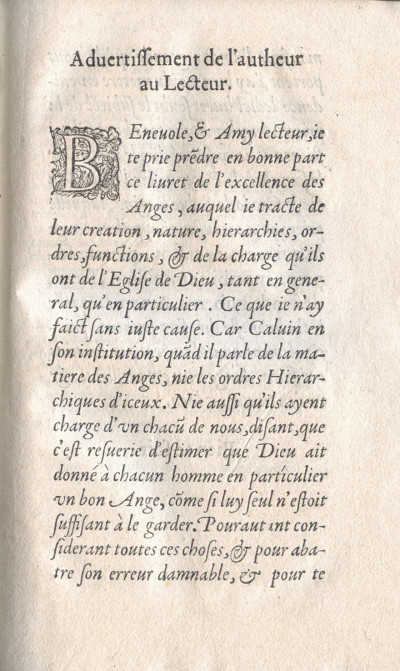 Aduertiſſement de l'autheur
au Lecteur.
BEneuole, & Amy lecteur, ie
te prie prẽdre en bonne part
ce liuret de l'excellence des
Anges, auquel ie tracte de
leur creation, nature, hierarchies, or-
dres, functions, & de la charge qu'ils
ont de l'Egliſe de Dieu, tant en gene-
ral, qu'en particulier. Ce que ie n'ay
faict ſans iuſte cauſe. Car Caluin en
ſon inſtitution, quãd il parle de la ma-
tiere des Anges, nie les ordres Hierar-
chiques d'iceux. Nie auſſi qu'ils ayent
charge d'vn chacũ de nous, diſant, que
c'eſt reſuerie d'eſtimer que Dieu ait
donné à chacun homme en particulier
vn bon Ange, cõme ſi luy ſeul n'eſtoit
ſuffiſant à le garder. Pourautant con-
ſiderant toutes ces choſes, & pour aba-
tre ſon erreur damnable, & pour te